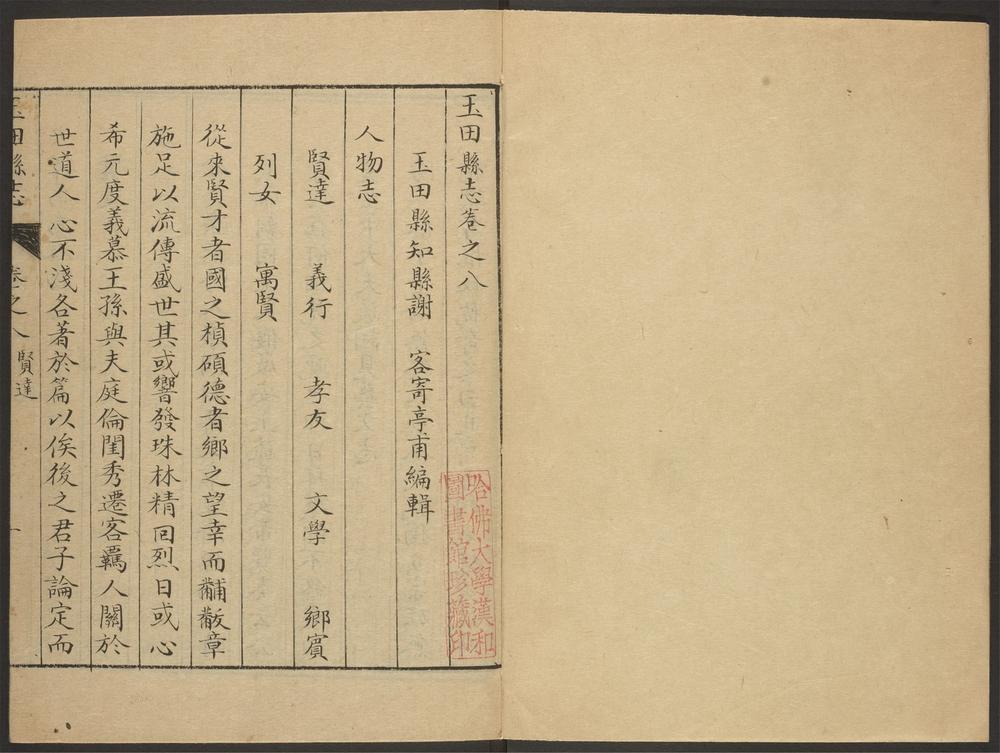 玉田縣志卷之八
玉田縣知縣謝 客寄亭甫編輯
人物志
賢達 義行 孝友 文學 鄉賓
列女 寓賢
從來賢才者國之楨碩德者鄉之望幸而黼黻章
施足以流傳盛世其或響發珠林精回烈日或心
希元度義慕王孫與夫庭倫閨秀遷客羈人關於
世道人心不淺各著於篇以俟後之君子論定而
玉田縣志 卷之八 賢達 一
哈佛大學漢和
圖書館珍藏印